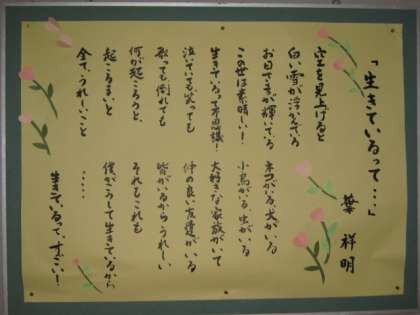 「生きているって・・・」
葉 祥明
空を見上げると
白い雲が浮かんでいる
お日さまが輝いている
この世は素晴しい!
生きているって不思議!
泣いていても、笑っても
歌っても、倒れても
何が起ころうと、
起こるまいと
全て、うれしいこと
ネコがいる、犬がいる
小鳥がいる、虫がいる
大好きな家族がいて
仲の良い友達がいる
皆がいるからうれしい
それもこれも
僕がこうして生きているから
・・・・・
生きているって、すごい!